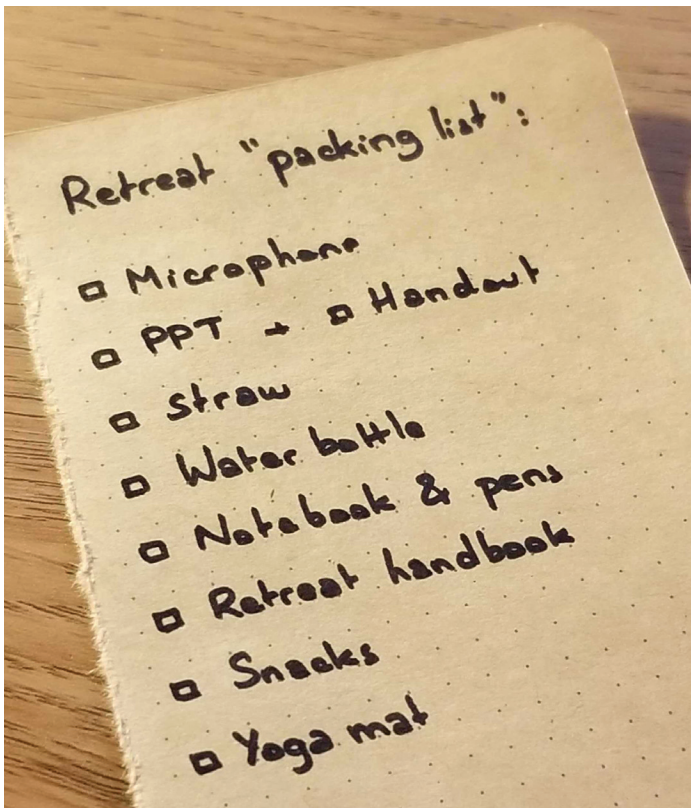 Retreat "packing list":
☐ Microphone
☐ PPT + ☐ Handout
☐ Straw
☐ Water bottle
☐ Notebook & pens
☐ Retreat handbook
☐ Snacks
☐ Yoga mat